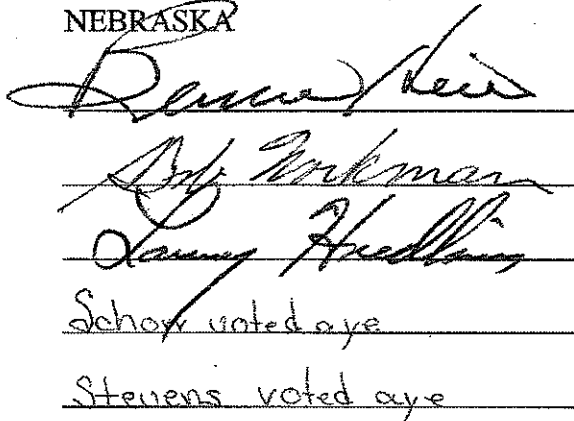 NEBRASKA
Bernie Heier
Bob Workman
Larry Hudkins
Schorr voted aye
Stevens voted aye